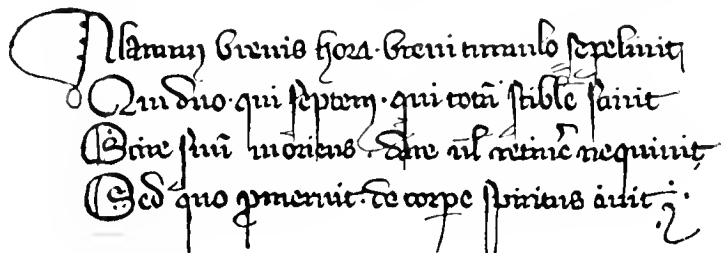 Alanum breuis hora · breui tumulo sepeliuit
Qui duo · qui septem · qui totū scibil̄e sciuit
Scire suū moriens · dare ul̄ retiner̄e nequiuit
Sed quo ꝓmeruit · de corꝑe spiritus iuit